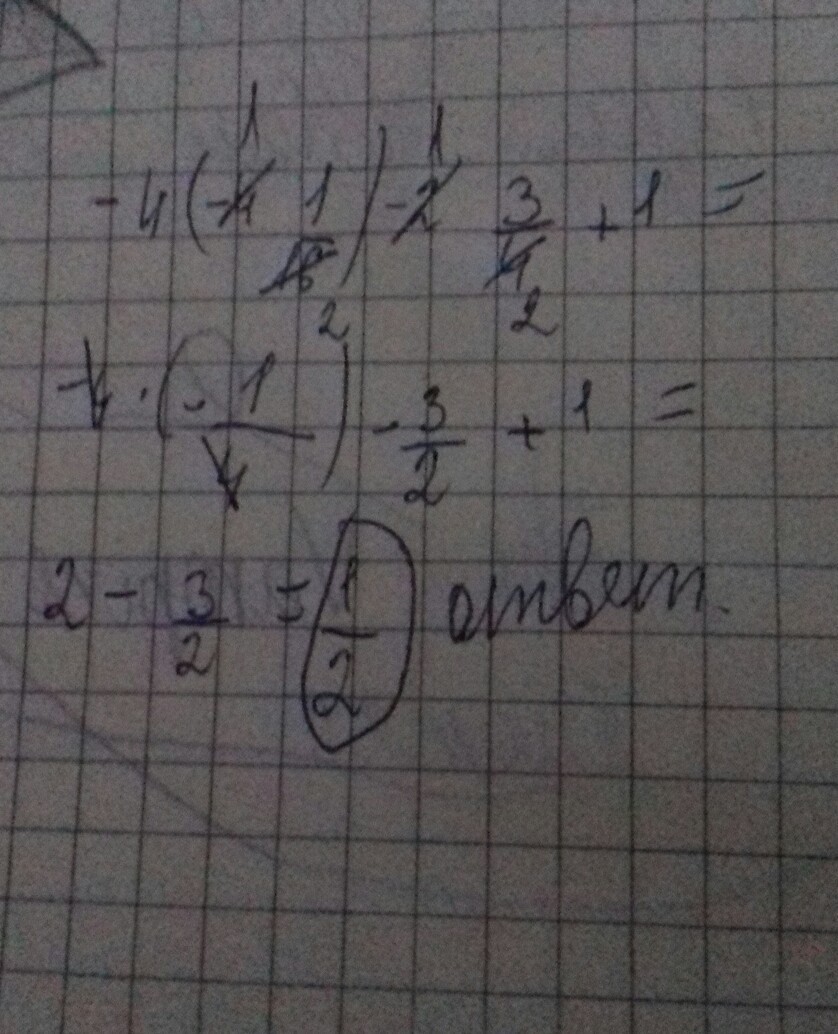 -4(-4 1/16) - 2 3/4 + 1 =
-4 · (- 1/4) - 3/2 + 1 =
2 - 3/2 = 1/2 ответ.